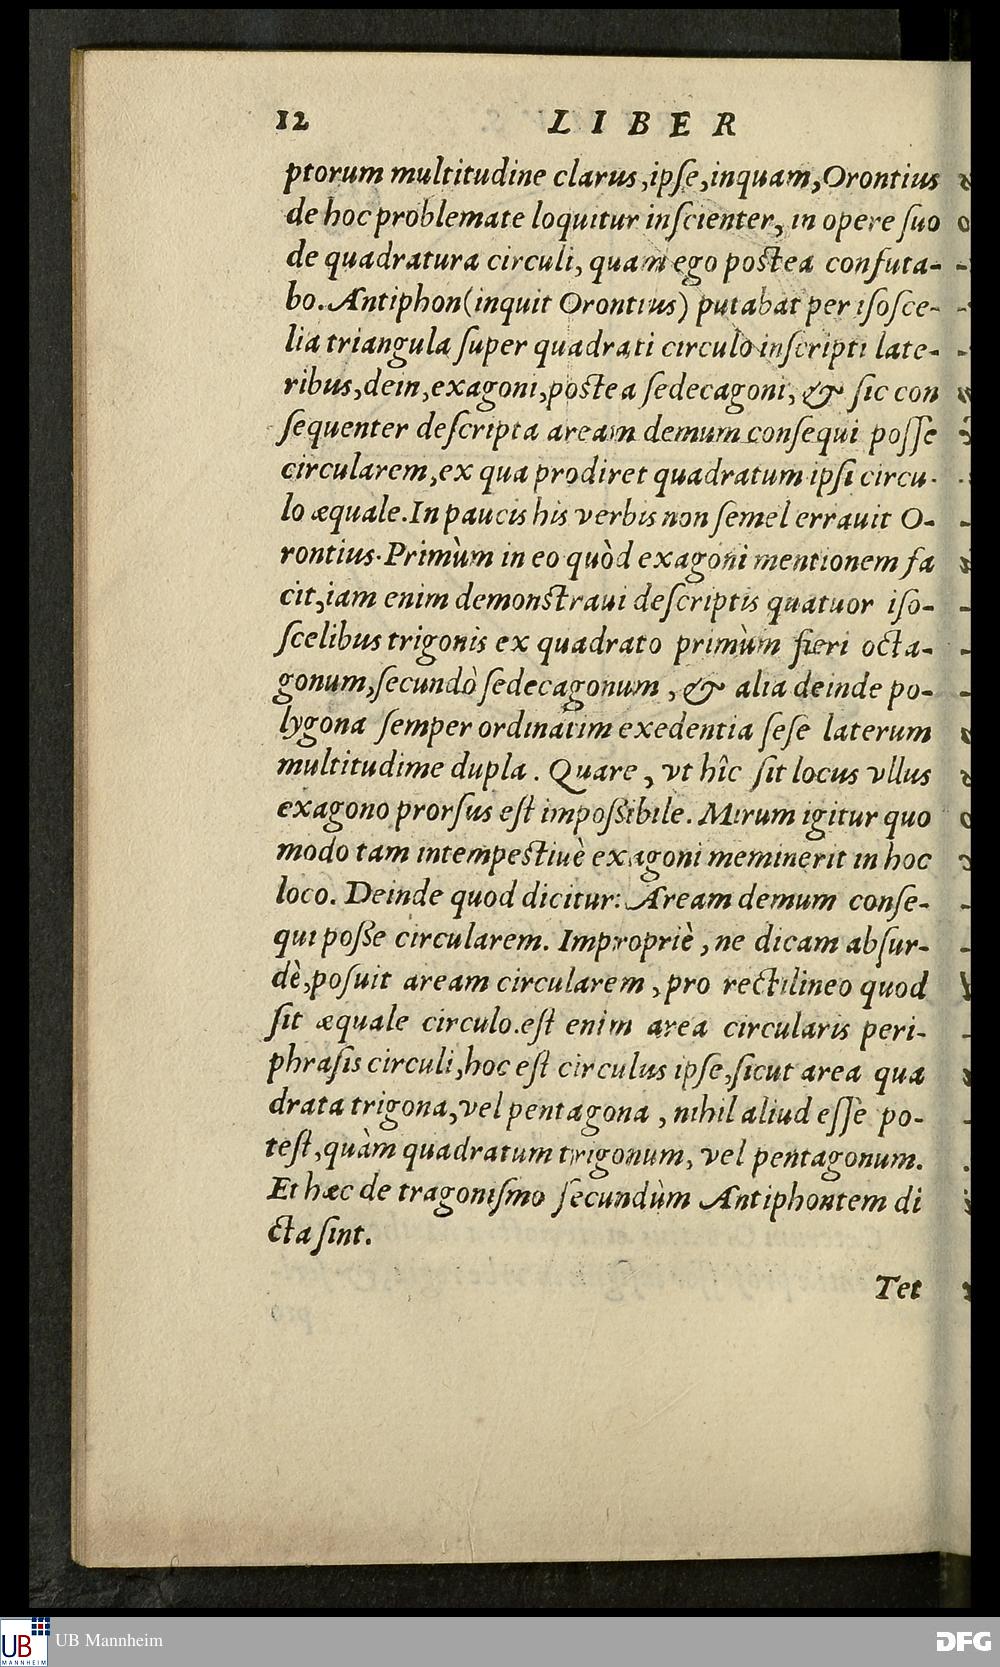 12 LIBER
ptorum multitudine clarus, ipſe, inquam, Orontius
de hoc problemate loquitur inſcienter, in opere ſuo
de quadratura circuli, quam ego poſtea confuta-
bo. Antiphon (inquit Orontius) putabat per iſoſce-
lia triangula ſuper quadrati circulo inſcripti late-
ribus, dein, exagoni, poſtea ſedecagoni, & ſic con
ſequenter deſcripta aream demum conſequi poſſe
circularem, ex qua prodiret quadratum ipſi circu-
lo æquale. In paucis his verbis non ſemel errauit O-
rontius. Primùm in eo quòd exagoni mentionem fa
cit, iam enim demonſtraui deſcriptis quatuor iſo-
ſcelibus trigonis ex quadrato primùm fieri octa-
gonum, ſecundò ſedecagonum, & alia deinde po-
lygona ſemper ordinatim exedentia ſeſe laterum
multitudime dupla. Quare, vt hîc ſit locus vllus
exagono prorſus eſt impoßibile. Mirum igitur quo
modo tam intempeſtiuè exagoni meminerit in hoc
loco. Deinde quod dicitur: Aream demum conſe-
qui poße circularem. Impropriè, ne dicam abſur-
dè, poſuit aream circularem, pro rectilineo quod
ſit æquale circulo. eſt enim area circularis peri-
phraſis circuli, hoc eſt circulus ipſe, ſicut area qua
drata trigona, vel pentagona, nihil aliud eſſe po-
teſt, quàm quadratum trigonum, vel pentagonum.
Et hæc de tragoniſmo ſecundùm Antiphontem di
cta ſint.
Tet
UB Mannheim
UB
MANNHEIM
DFG